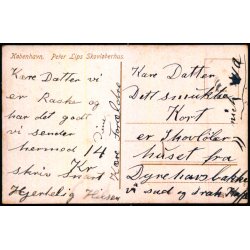 København. Peter Lips Skovløberhus.
Kære Datter vi
er Raske og
har det godt
vi sender
hermed 14 Kr
skriv snart
Hjertelig Hilsen
Dine
Kære Forældre
Kære Datter,
Dett smukke
Kort
er
huset fra
Dyrehavsbakken
vi sad og drak